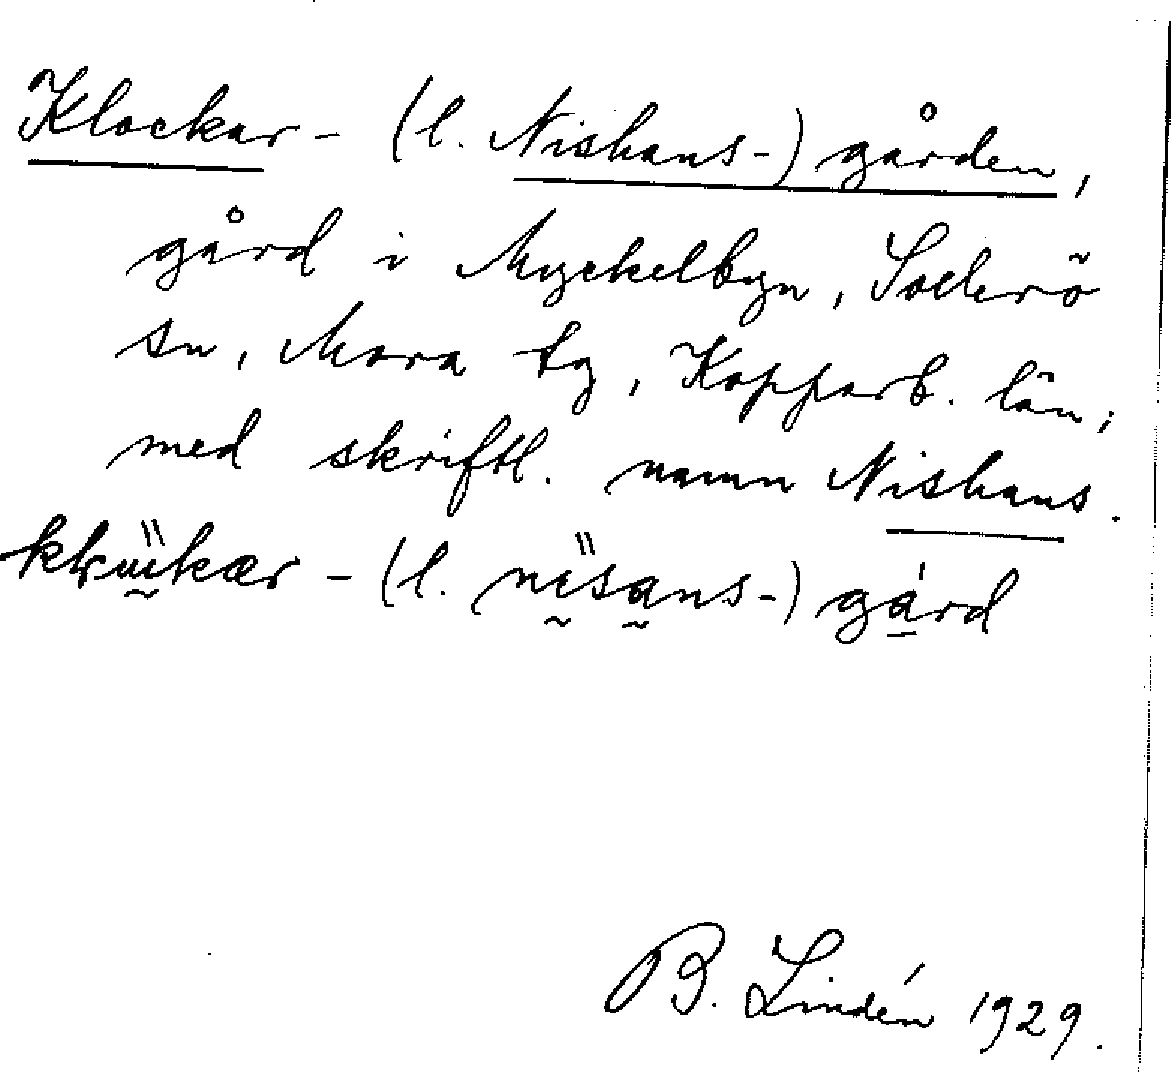 Klockar- (l. Nishans-) gården,
gård i Myckelbyn, Sollerö
sn, Mora tg, Kopparb. län;
med skriftl. namn Nishans.
-(l. nisans-) gård
B. Lindén 1929.